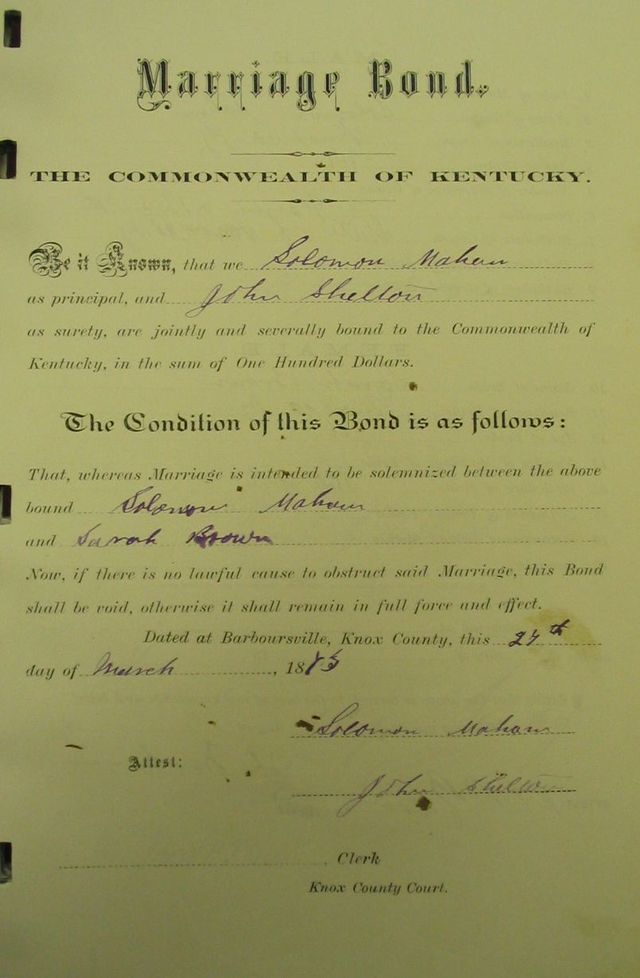 Marriage Bond.
THE COMMONWEALTH OF KENTUCKY.
Be it Known, that we Solomon Mahan
as principal, and John Shelton
as surety, are jointly and severally bound to the Commonwealth of
Kentucky, in the sum of One Hundred Dollars.
The Condition of this Bond is as follows:
That, whereas Marriage is intended to be solemnized between the above
bound Solomon Mahan
and Sarah Brown
Now, if there is no lawful cause to obstruct said Marriage, this Bond
shall be void, otherwise it shall remain in full force and effect.
Dated at Barboursville, Knox County, this
day of March, 18
Solomon Mahan
Attest:
John Shelton
, Clerk
Knox County Court.